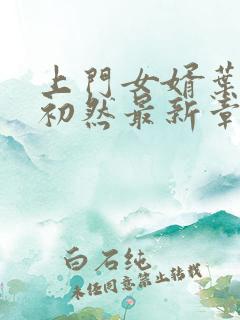 上門女婿葉
初然最新章
白石纯
未经同意禁止转载